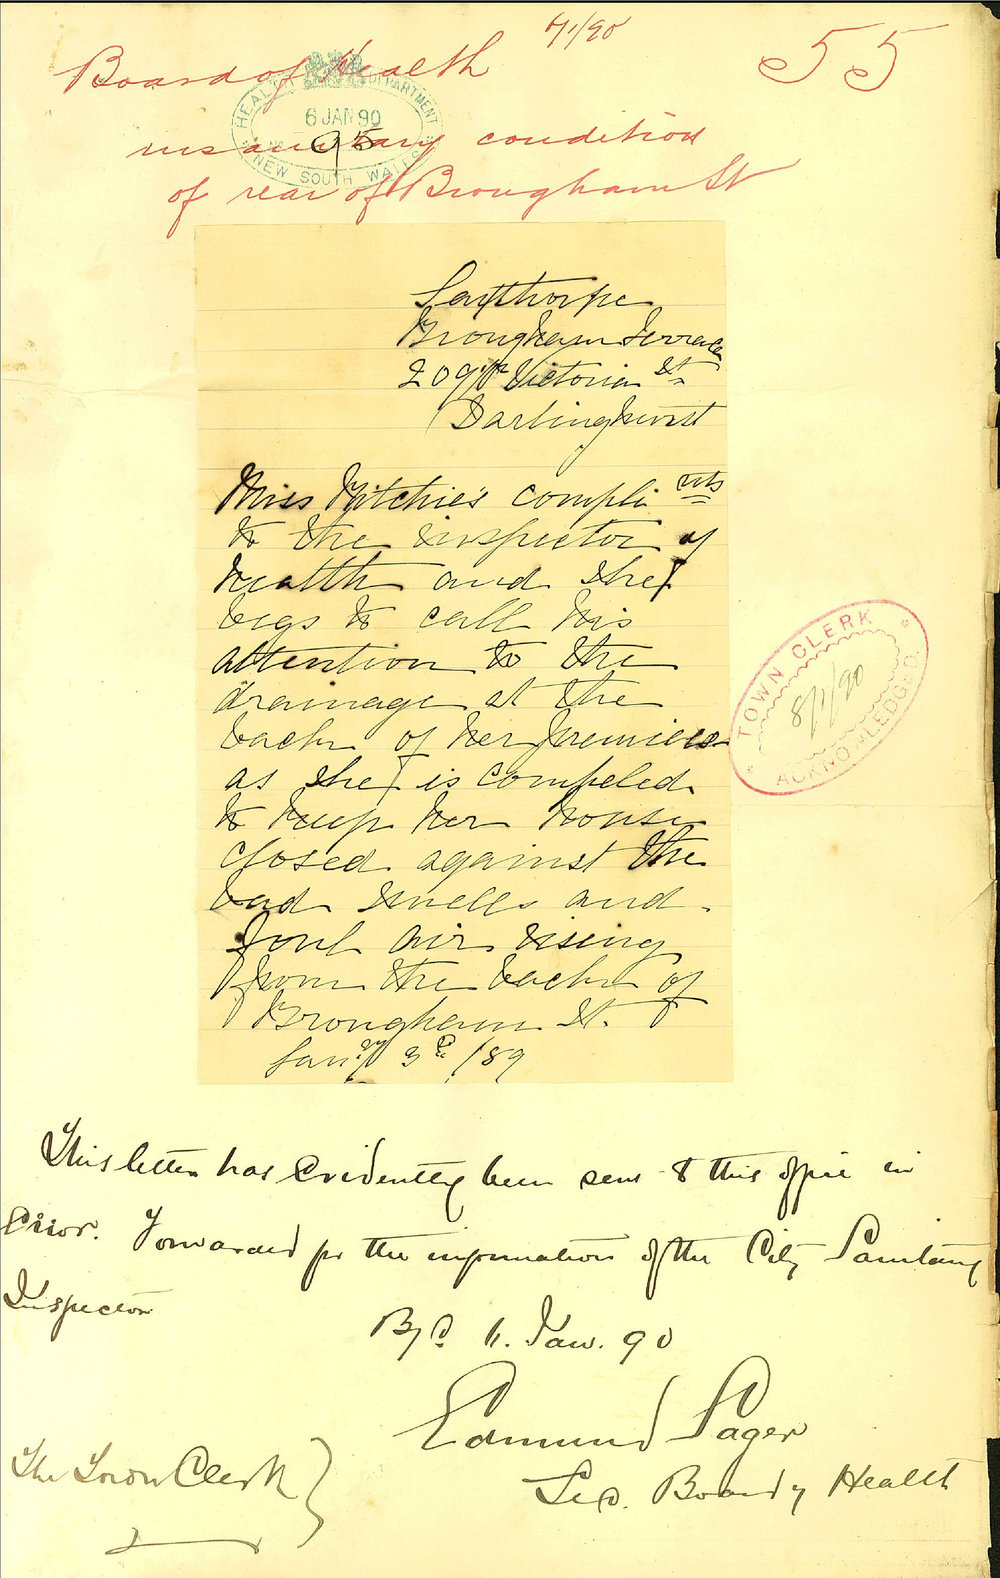 7/1/90
55
Board of Health
HEALTH DEPARTMENT
6 JAN 90
95
NEW SOUTH WALES
insanitary condition
of rear of Brougham St
Brougham Terrace
209 Victoria St
Darlinghurst
Miss Ritchie's compliments
to the inspector of
Health and she
begs to call his
attention to the
drainage at the
back of her premises
as she is compeled
to keep her house
closed against the
bad smells and
foul air rising
from the back of
Brougham St.
Jany 3d /89
TOWN CLERK
8/1/90
ACKNOWLEDGED
This letter has evidently been sent to this office in
Error. Forwarded for the information of the City Sanitary
Inspector
B.C. 6. Jan. 90
Edmund Sager
Sec. Board of Health
The Town Clerk